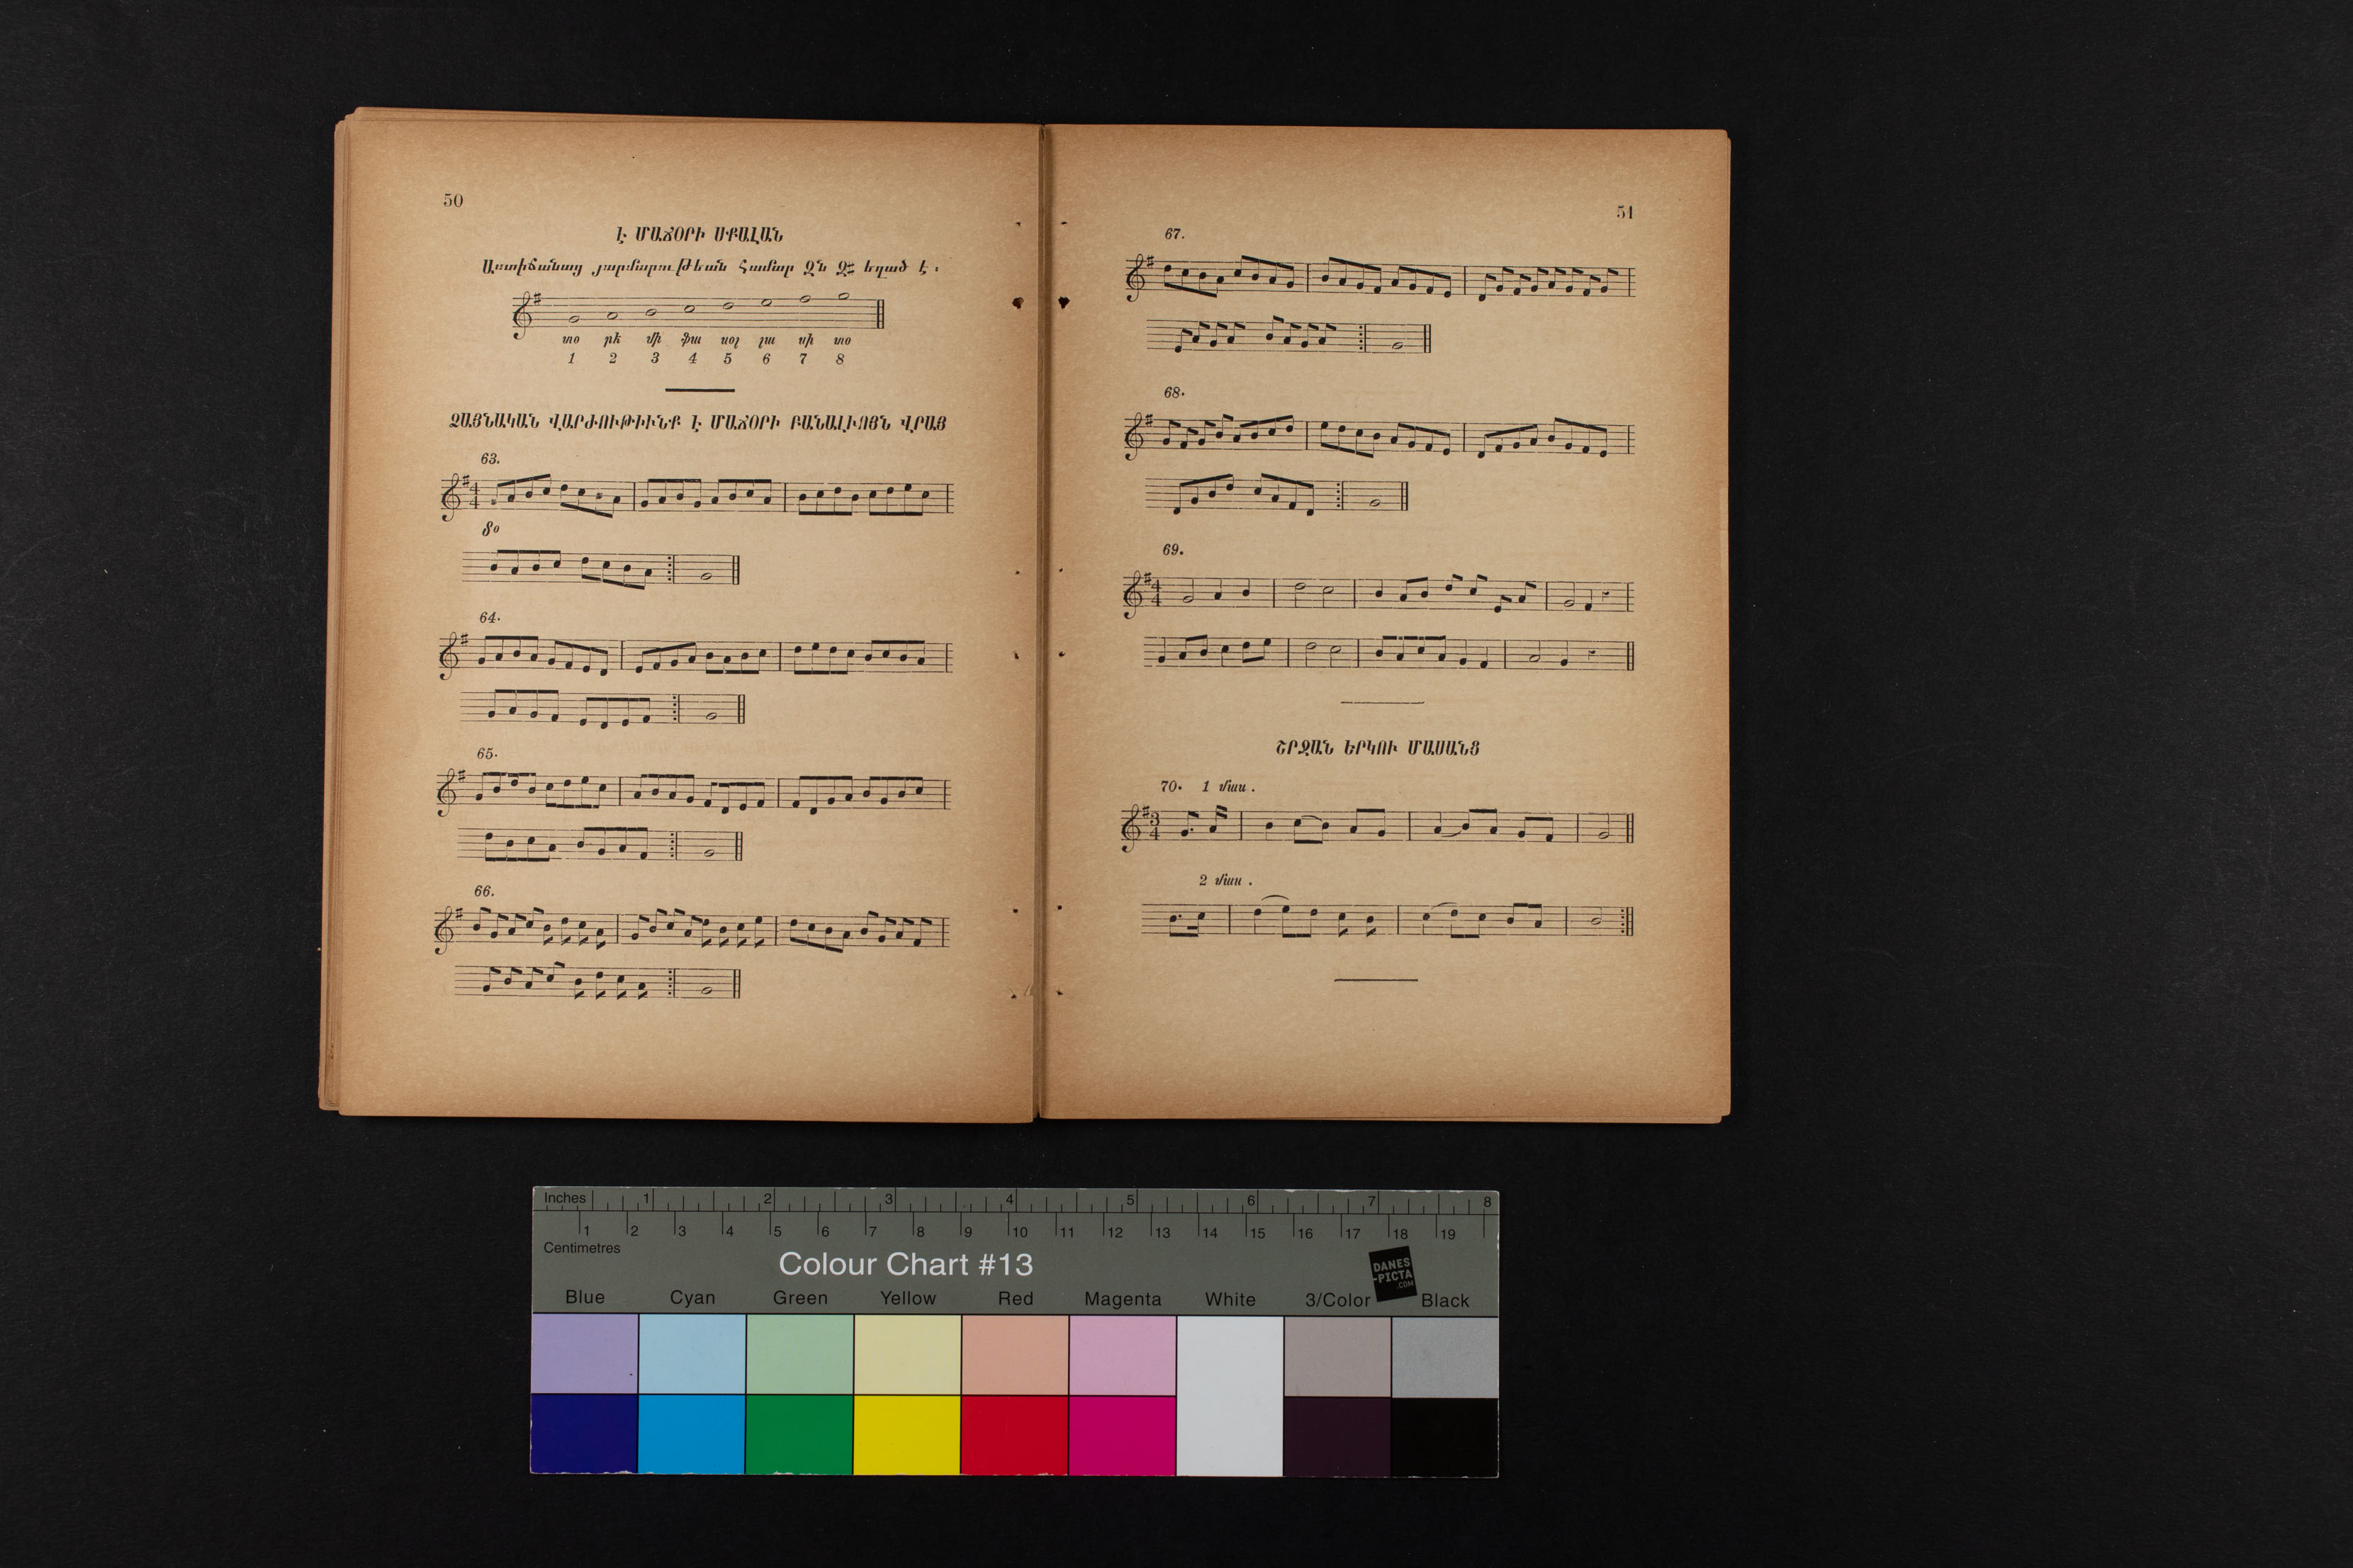 50
Է ՄԱՃՕՐԻ ՍՔԱԼԱՆ
Աստիճանաց յարմարութեան համար Ձն Ձ♯ եղած է ։
տօ րէ մի ֆա սօլ լա սի տօ
1 2 3 4 5 6 7 8
ՁԱՅՆԱԿԱՆ ՎԱՐԺՈՒԹԻՒՆՔ Է ՄԱՃՕՐԻ ԲԱՆԱԼԻՈՅՆ ՎՐԱՅ
63.
4
4
Տօ
64.
65.
66.
51
67.
68.
69.
4
4
ՇՐՋԱՆ ԵՐԿՈՒ ՄԱՍԱՆՑ
70. 1 մաս .
3
4
2 մաս .
Inches 1 2 3 4 5 6 7 8
1 2 3 4 5 6 7 8 9 10 11 12 13 14 15 16 17 18 19
Centimetres
Colour Chart #13
DANES
-PICTA
.COM
Blue Cyan Green Yellow Red Magenta White 3/Color Black